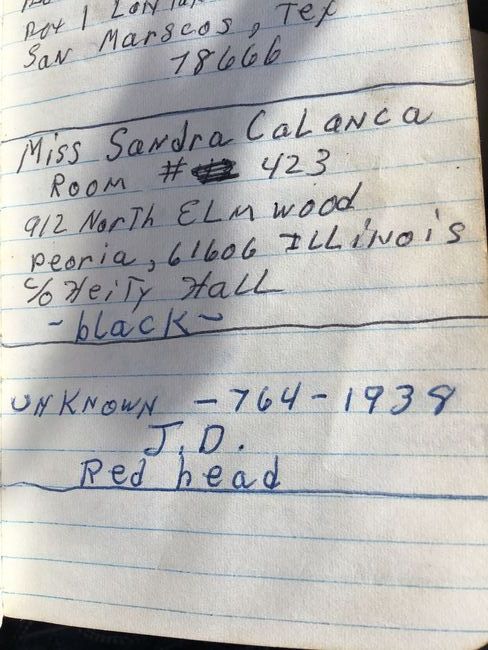 Box 1
San Marscos, Tex
78666
Miss Sandra Calanca
Room # 423
912 North Elmwood
peoria, 61606 Illinois
c/o Heity Hall
- black -
Unknown - 764-1938
J.D.
Red head